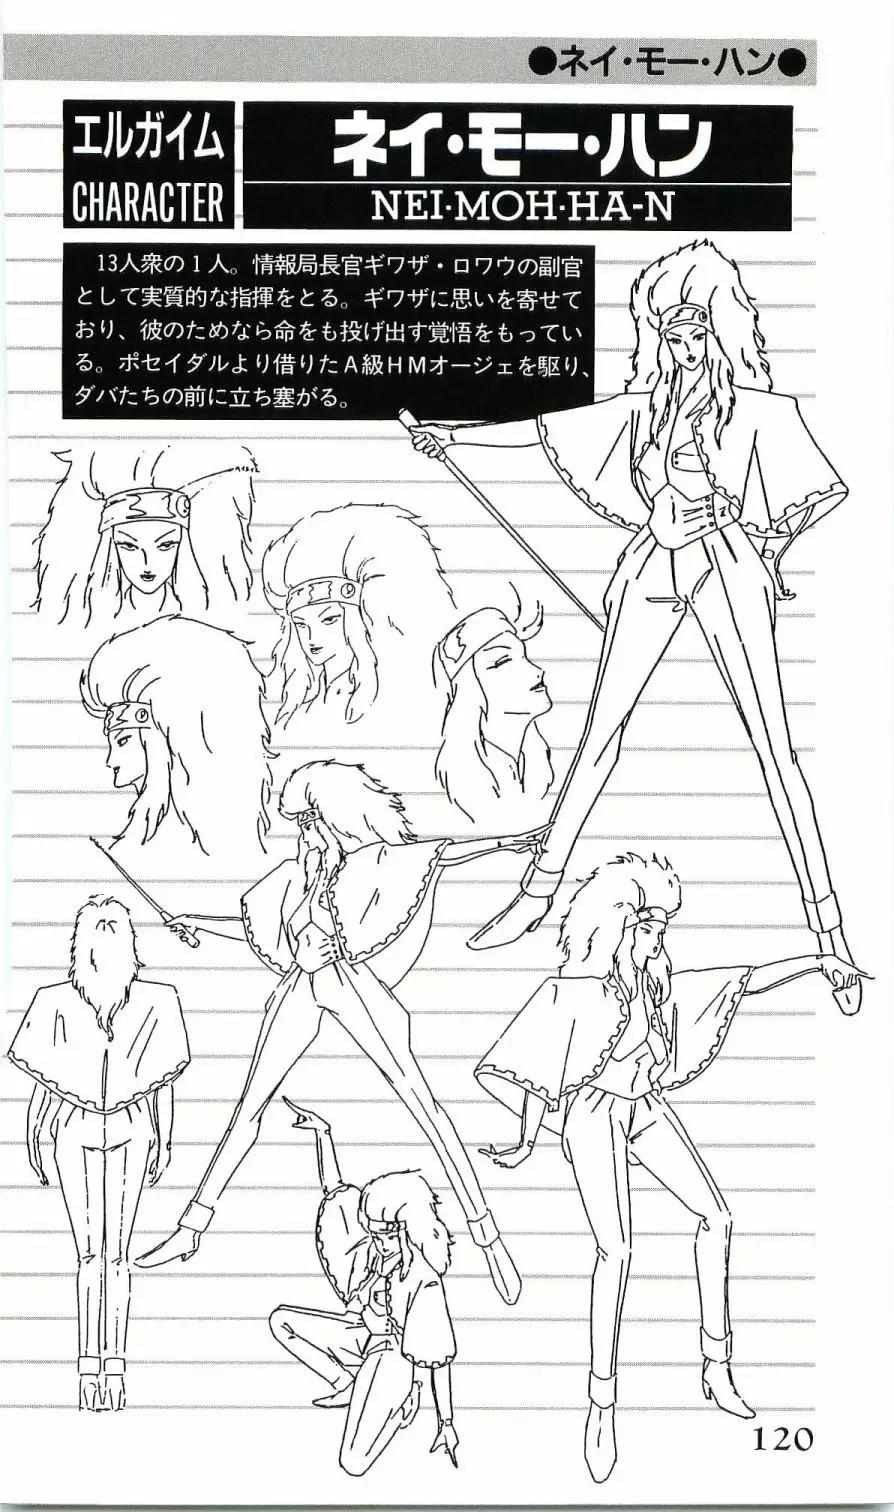 ●ネイ・モー・ハン●
エルガイム
CHARACTER
ネイ・モー・ハン
NEI・MOH・HA-N
13人衆の1人。情報局長官ギワザ・ロワウの副官
として実質的な指揮をとる。ギワザに思いを寄せて
おり、彼のためなら命をも投げ出す覚悟をもってい
る。ポセイダルより借りたA級HMオージェを駆り、
ダバたちの前に立ち塞がる。
120